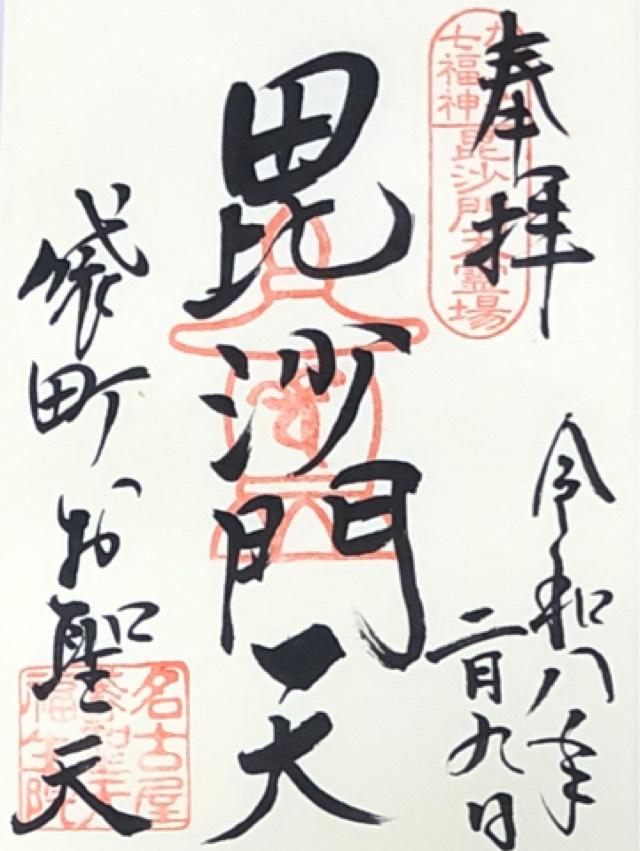 奉拝
七福神
毘沙門天霊場
令和八年
二月九日
毘沙門天
袋町お聖天
名古屋
福生院